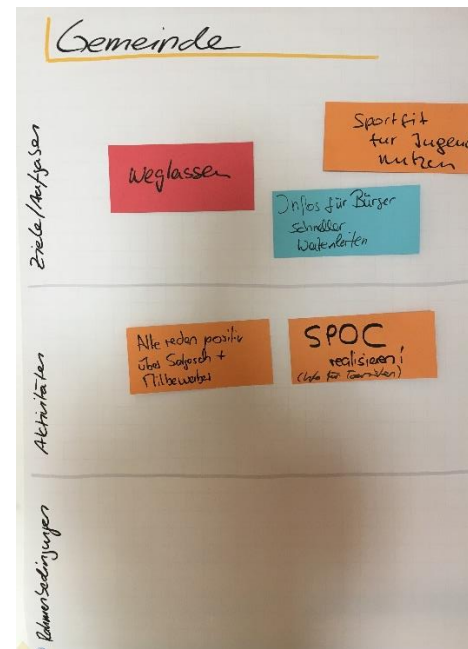 Gemeinde
Ziele/Aufgaben
Sportfit
für Jugend
nutzen
weglassen
Infos für Bürger
schneller
weiterleiten
Aktivitäten
Alle reden positiv
über +
Mitbewerber
SPOC
realisieren!
(Info für Touristen)
Rahmenbedingungen